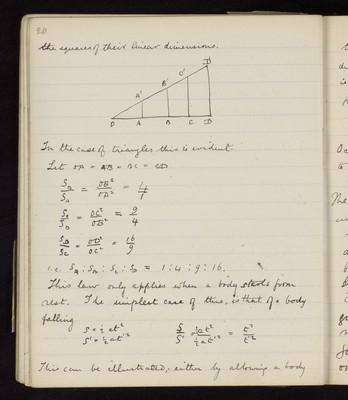 20
the squares of their linear dimensions.
D'
C'
B'
A'
O A B C D
In the case of triangles this is evident
Let OA = AB = BC = CD
S_B/S_A = OB²/OA² = 4/1
S_C/S_B = OC²/OB² = 9/4
S_D/S_C = OD²/OC² = 16/9
i.e. S_A : S_B : S_C : S_D = 1 : 4 : 9 : 16.
This law only applies when a body starts from
rest. The simplest case of this, is that of a body
falling
S = ½ at² S/S' = ½at²/½at'² = t²/t'²
S' = ½ at'²
This can be illustrated, either by allowing a body